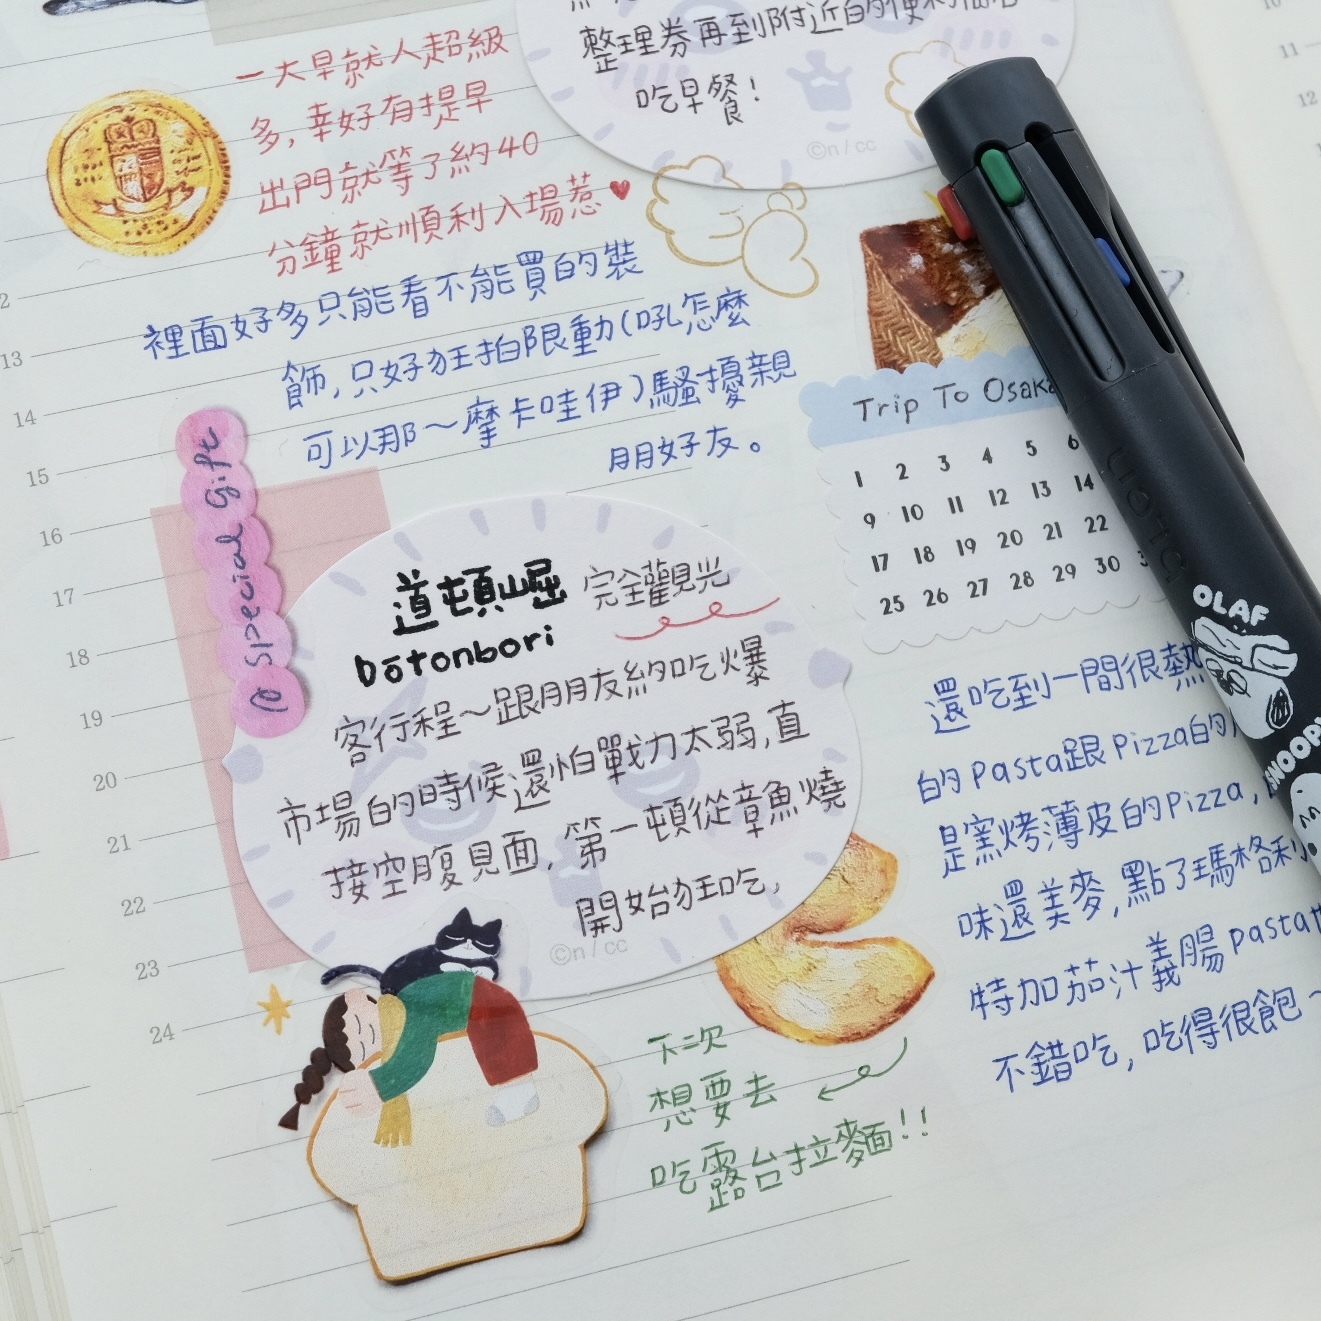 整理券再到附近的便利商店
吃早餐!
©n/cc
一大早就人超級
多,幸好有提早
出門就等了約40
分鐘就順利入場惹♥
裡面好多只能看不能買的裝
飾,只好狂拍限動(吼怎麼
可以那~摩卡哇伊)騷擾親
朋好友。
Special Gift
道頓崛 完全觀光
Dōtonbori
客行程~跟朋友約吃爆
市場的時候還怕戰力太弱,直
接空腹見面,第一頓從章魚燒
開始狂吃,
©n/cc
Trip To Osaka
1 2 3 4 5 6
9 10 11 12 13 14
17 18 19 20 21 22
25 26 27 28 29 30
還吃到一間很熱
的Pasta跟Pizza的,
是窯烤薄皮的Pizza,
味還美麥,點了瑪格利
特加茄汁義腸pasta
不錯吃,吃得很飽~
下次
想要去
吃露台拉麵!!
12
13
14
15
16
17
18
19
20
21
22
23
24
10
11
12
OLAF
SNOOPY